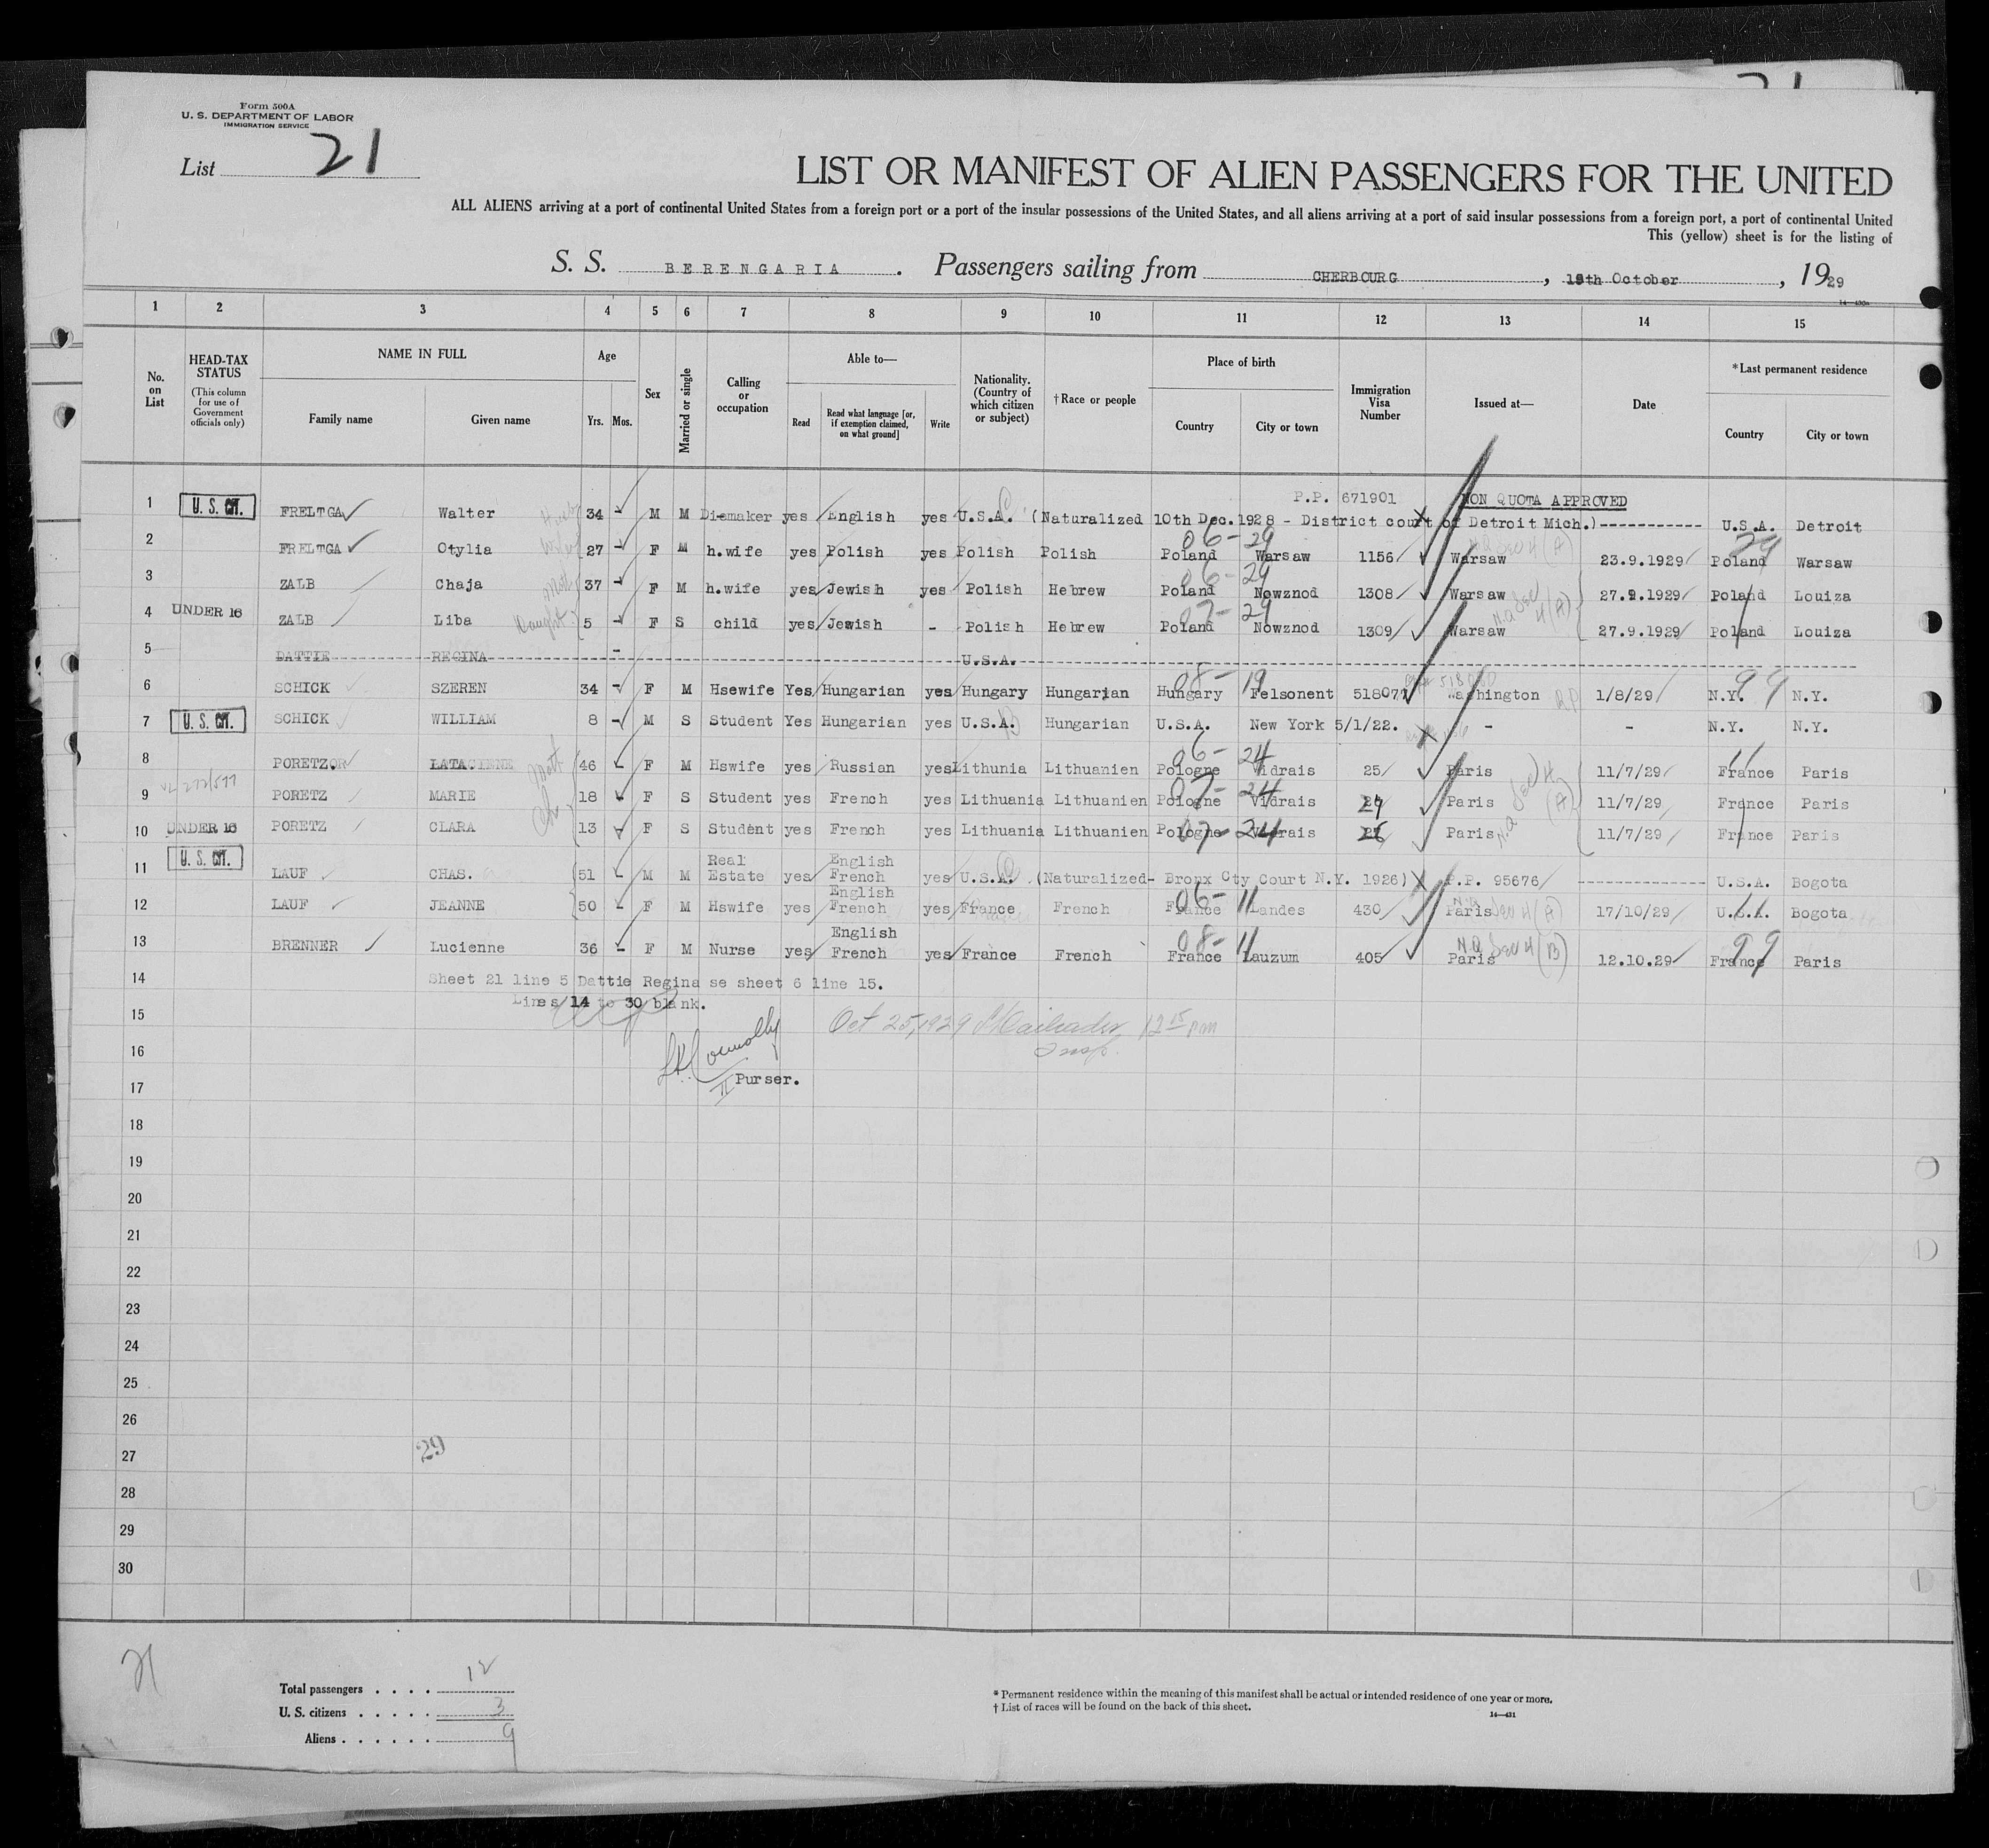 Form 500A
U. S. DEPARTMENT OF LABOR
IMMIGRATION SERVICE
List 21
LIST OR MANIFEST OF ALIEN PASSENGERS FOR THE UNITED
ALL ALIENS arriving at a port of continental United States from a foreign port or a port of the insular possessions of the United States, and all aliens arriving at a port of said insular possessions from a foreign port, a port of continental United
This (yellow) sheet is for the listing of
S. S. BERENGARIA. Passengers sailing from CHERBOURG, 19th October, 1929
1 2 3 4 5 6 7 8 9 10 11 12 13 14 15
No. on List
HEAD-TAX STATUS (This column for use of Government officials only)
NAME IN FULL Family name Given name
Age Yrs. Mos.
Sex
Married or single
Calling or occupation
Able to— Read Read what language [or, if exemption claimed, on what ground] Write
Nationality. (Country of which citizen or subject)
†Race or people
Place of birth Country City or town
Immigration Visa Number
Issued at—
Date
*Last permanent residence Country City or town
P.P. 671901 NON QUOTA APPROVED
1 U. S. CIT. FRELTGA Walter 34 - M M Diemaker yes English yes U.S.A. (Naturalized 10th Dec.1928 - District court of Detroit Mich.)----------- U.S.A. Detroit
06- 29 29
2 FRELTGA Otylia 27 - F M h.wife yes Polish yes Polish Polish Poland Warsaw 1156 Warsaw 23.9.1929 Poland Warsaw
06- 29
3 ZALB Chaja 37 - F M h.wife yes Jewish yes Polish Hebrew Poland Nowznod 1308 Warsaw 27.9.1929 Poland Louiza
07- 29
4 UNDER 16 ZALB Liba 5 - F S child yes Jewish - Polish Hebrew Poland Nowznod 1309 Warsaw 27.9.1929 Poland Louiza
5 DATTIE REGINA - U.S.A.
08- 19 99
6 SCHICK SZEREN 34 - F M Hsewife Yes Hungarian yes Hungary Hungarian Hungary Felsonent 518077 Washington 1/8/29 N.Y. N.Y.
7 U. S. CIT. SCHICK WILLIAM 8 - M S Student Yes Hungarian yes U.S.A. Hungarian U.S.A. New York 5/1/22. - - N.Y. N.Y.
06- 24 11
8 PORETZ 46 - F M Hswife yes Russian yes Lithunia Lithuanien Pologne Vidrais 25 Paris 11/7/29 France Paris
07- 24
9 PORETZ MARIE 18 - F S Student yes French yes Lithuania Lithuanien Pologne Vidrais Paris 11/7/29 France Paris
07- 24
10 UNDER 16 PORETZ CLARA 13 - F S Student yes French yes Lithuania Lithuanien Pologne Vidrais Paris 11/7/29 France Paris
11 U. S. CIT. LAUF CHAS. 51 - M M Real Estate yes English French yes U.S.A. (Naturalized- Bronx Cty Court N.Y. 1926) P.P. 95676 ------------- U.S.A. Bogota
06- 11
12 LAUF JEANNE 50 - F M Hswife yes English French yes France French France Landes 430 Paris 17/10/29 U.S.A. Bogota
08- 11 99
13 BRENNER Lucienne 36 - F M Nurse yes English French yes France French France Lauzum 405 Paris 12.10.29 France Paris
14 Sheet 21 line 5 Dattie Regina se sheet 6 line 15.
Lines 14 to 30 blank.
15 Oct 25, 1929 12 15 pm
16 Insp.
Connolly
17 II Purser.
18
19
20
21
22
23
24
25
26
27
29
28
29
30
21
Total passengers . . . . 12
U. S. citizens . . . . . 3
Aliens . . . . . . 9
* Permanent residence within the meaning of this manifest shall be actual or intended residence of one year or more.
† List of races will be found on the back of this sheet.
14—431